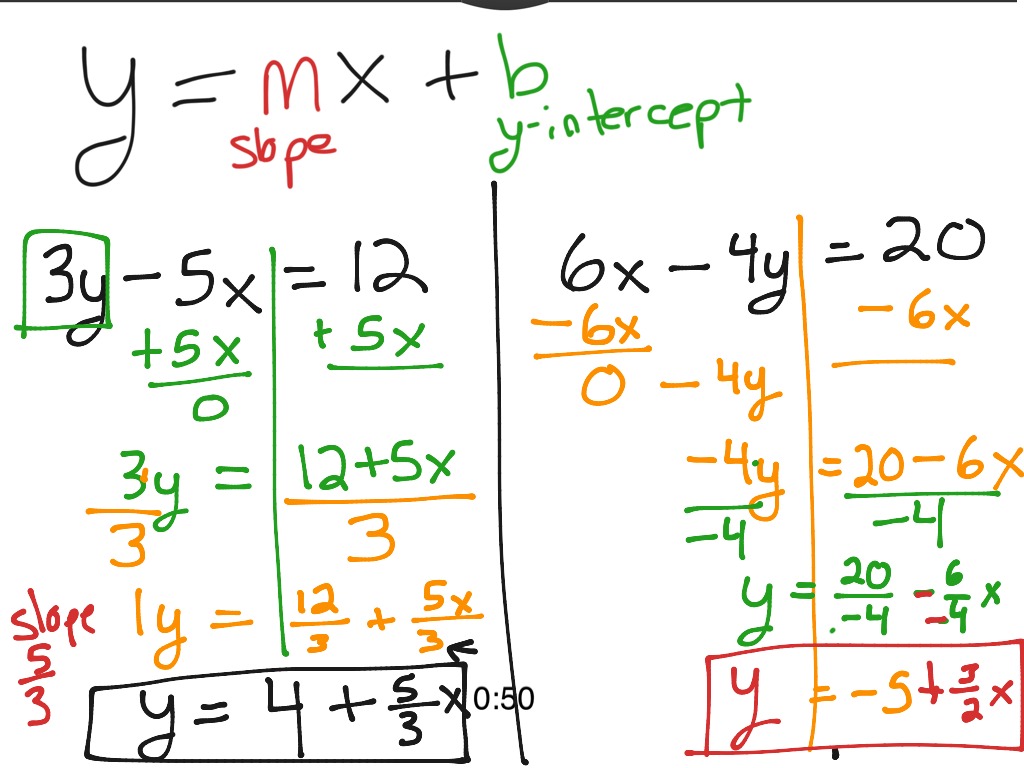 y = mx + b
slope
y-intercept
3y - 5x = 12
+5x + 5x
0
3y = 12+5x
3 3
1y = 12/3 + 5x/3
slope
5/3
y = 4 + 5/3 x
0:50
6x - 4y = 20
-6x - 6x
0 - 4y
-4y = 20 - 6x
-4 -4
y = 20/-4 - 6/-4 x
y = -5 + 3/2 x